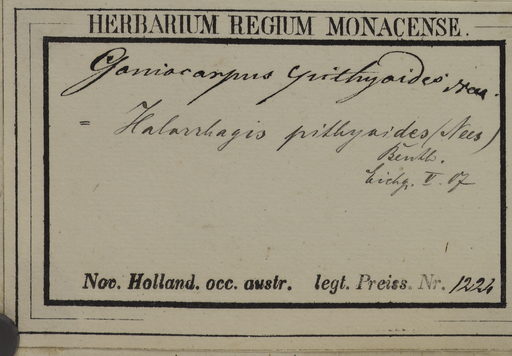 HERBARIUM REGIUM MONACENSE.
Goniocarpus pithyoides Nees.
= Halorrhagis pithyoides (Nees)
Benth.
V. 07
Nov. Holland. occ. austr. legt. Preiss. Nr. 1226